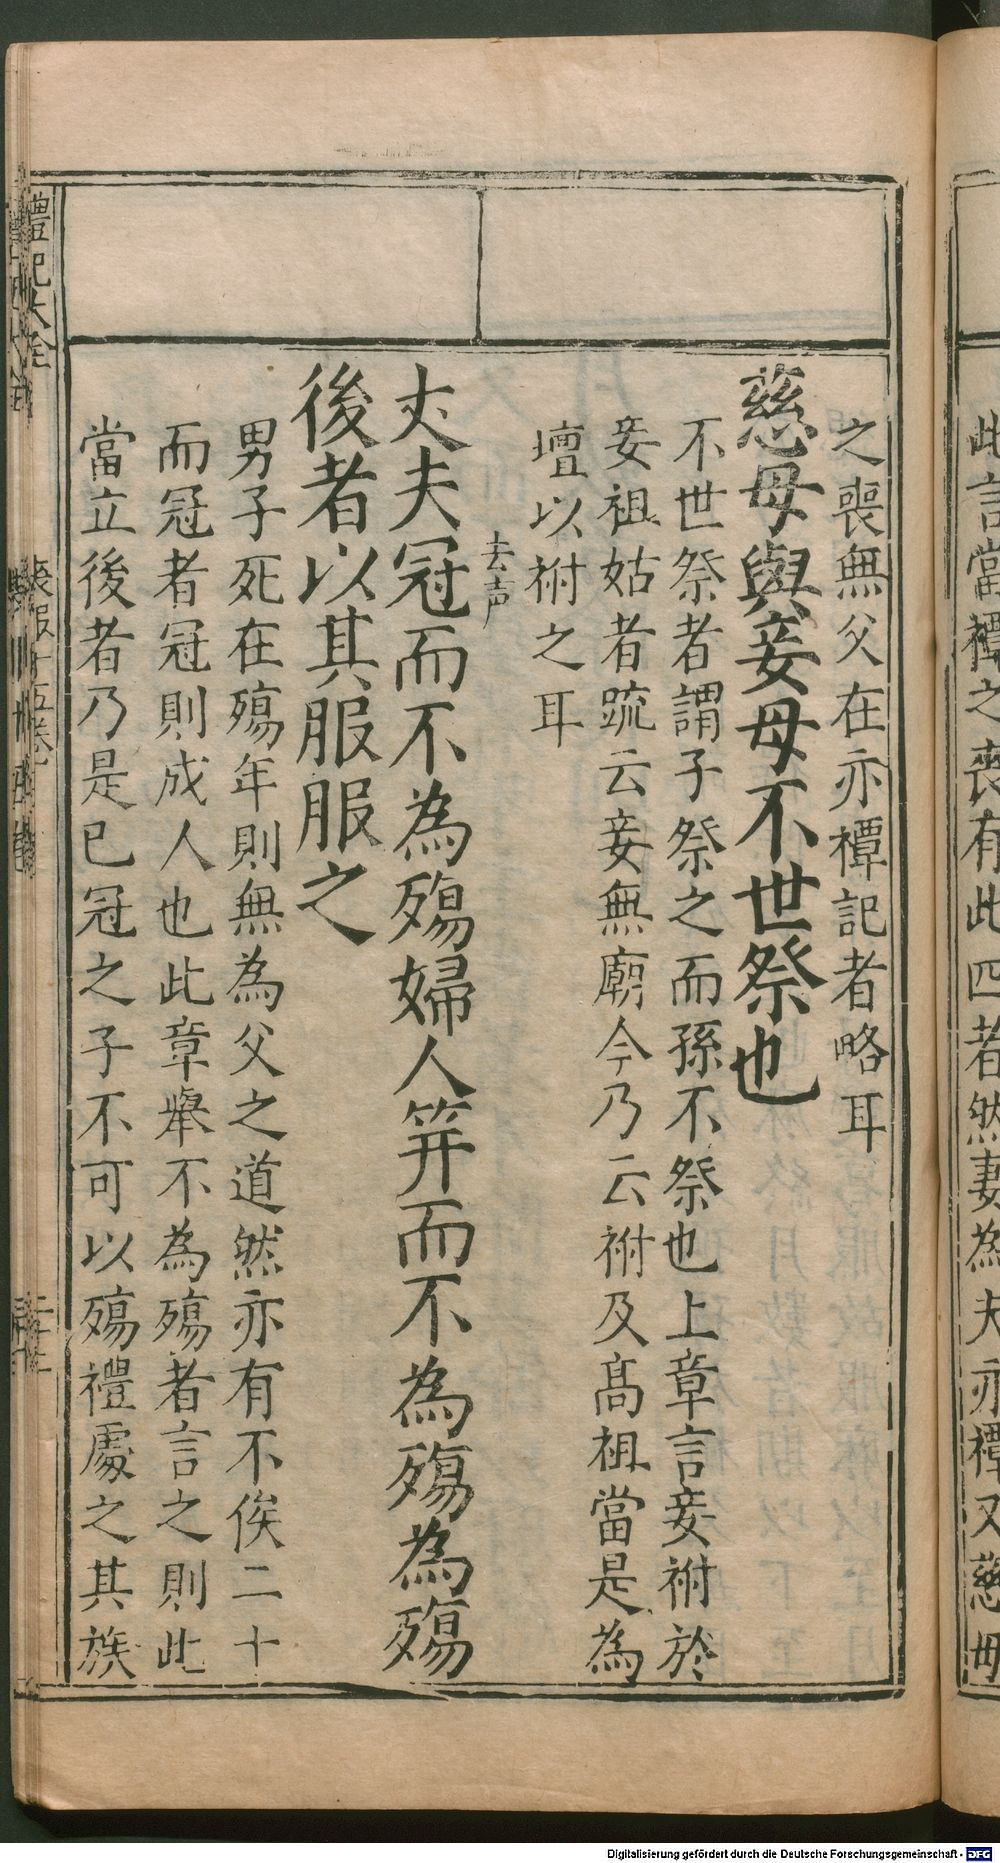 此言當禫之喪有此四者然妻為夫亦禫又慈母
之喪無父在亦禫記者略耳
慈母與妾母不世祭也
不世祭者謂子祭之而孫不祭也上章言妾祔於
妾祖姑者疏云妾無廟今乃云祔及高祖當是為
壇以祔之耳
去声
丈夫冠而不為殤婦人笄而不為殤為殤
後者以其服服之
男子死在殤年則無為父之道然亦有不俟二十
而冠者冠則成人也此章舉不為殤者言之則此
當立後者乃是已冠之子不可以殤禮處之其族
禮記大全
喪服十五卷
Digitalisierung gefördert durch die Deutsche Forschungsgemeinschaft - DFG